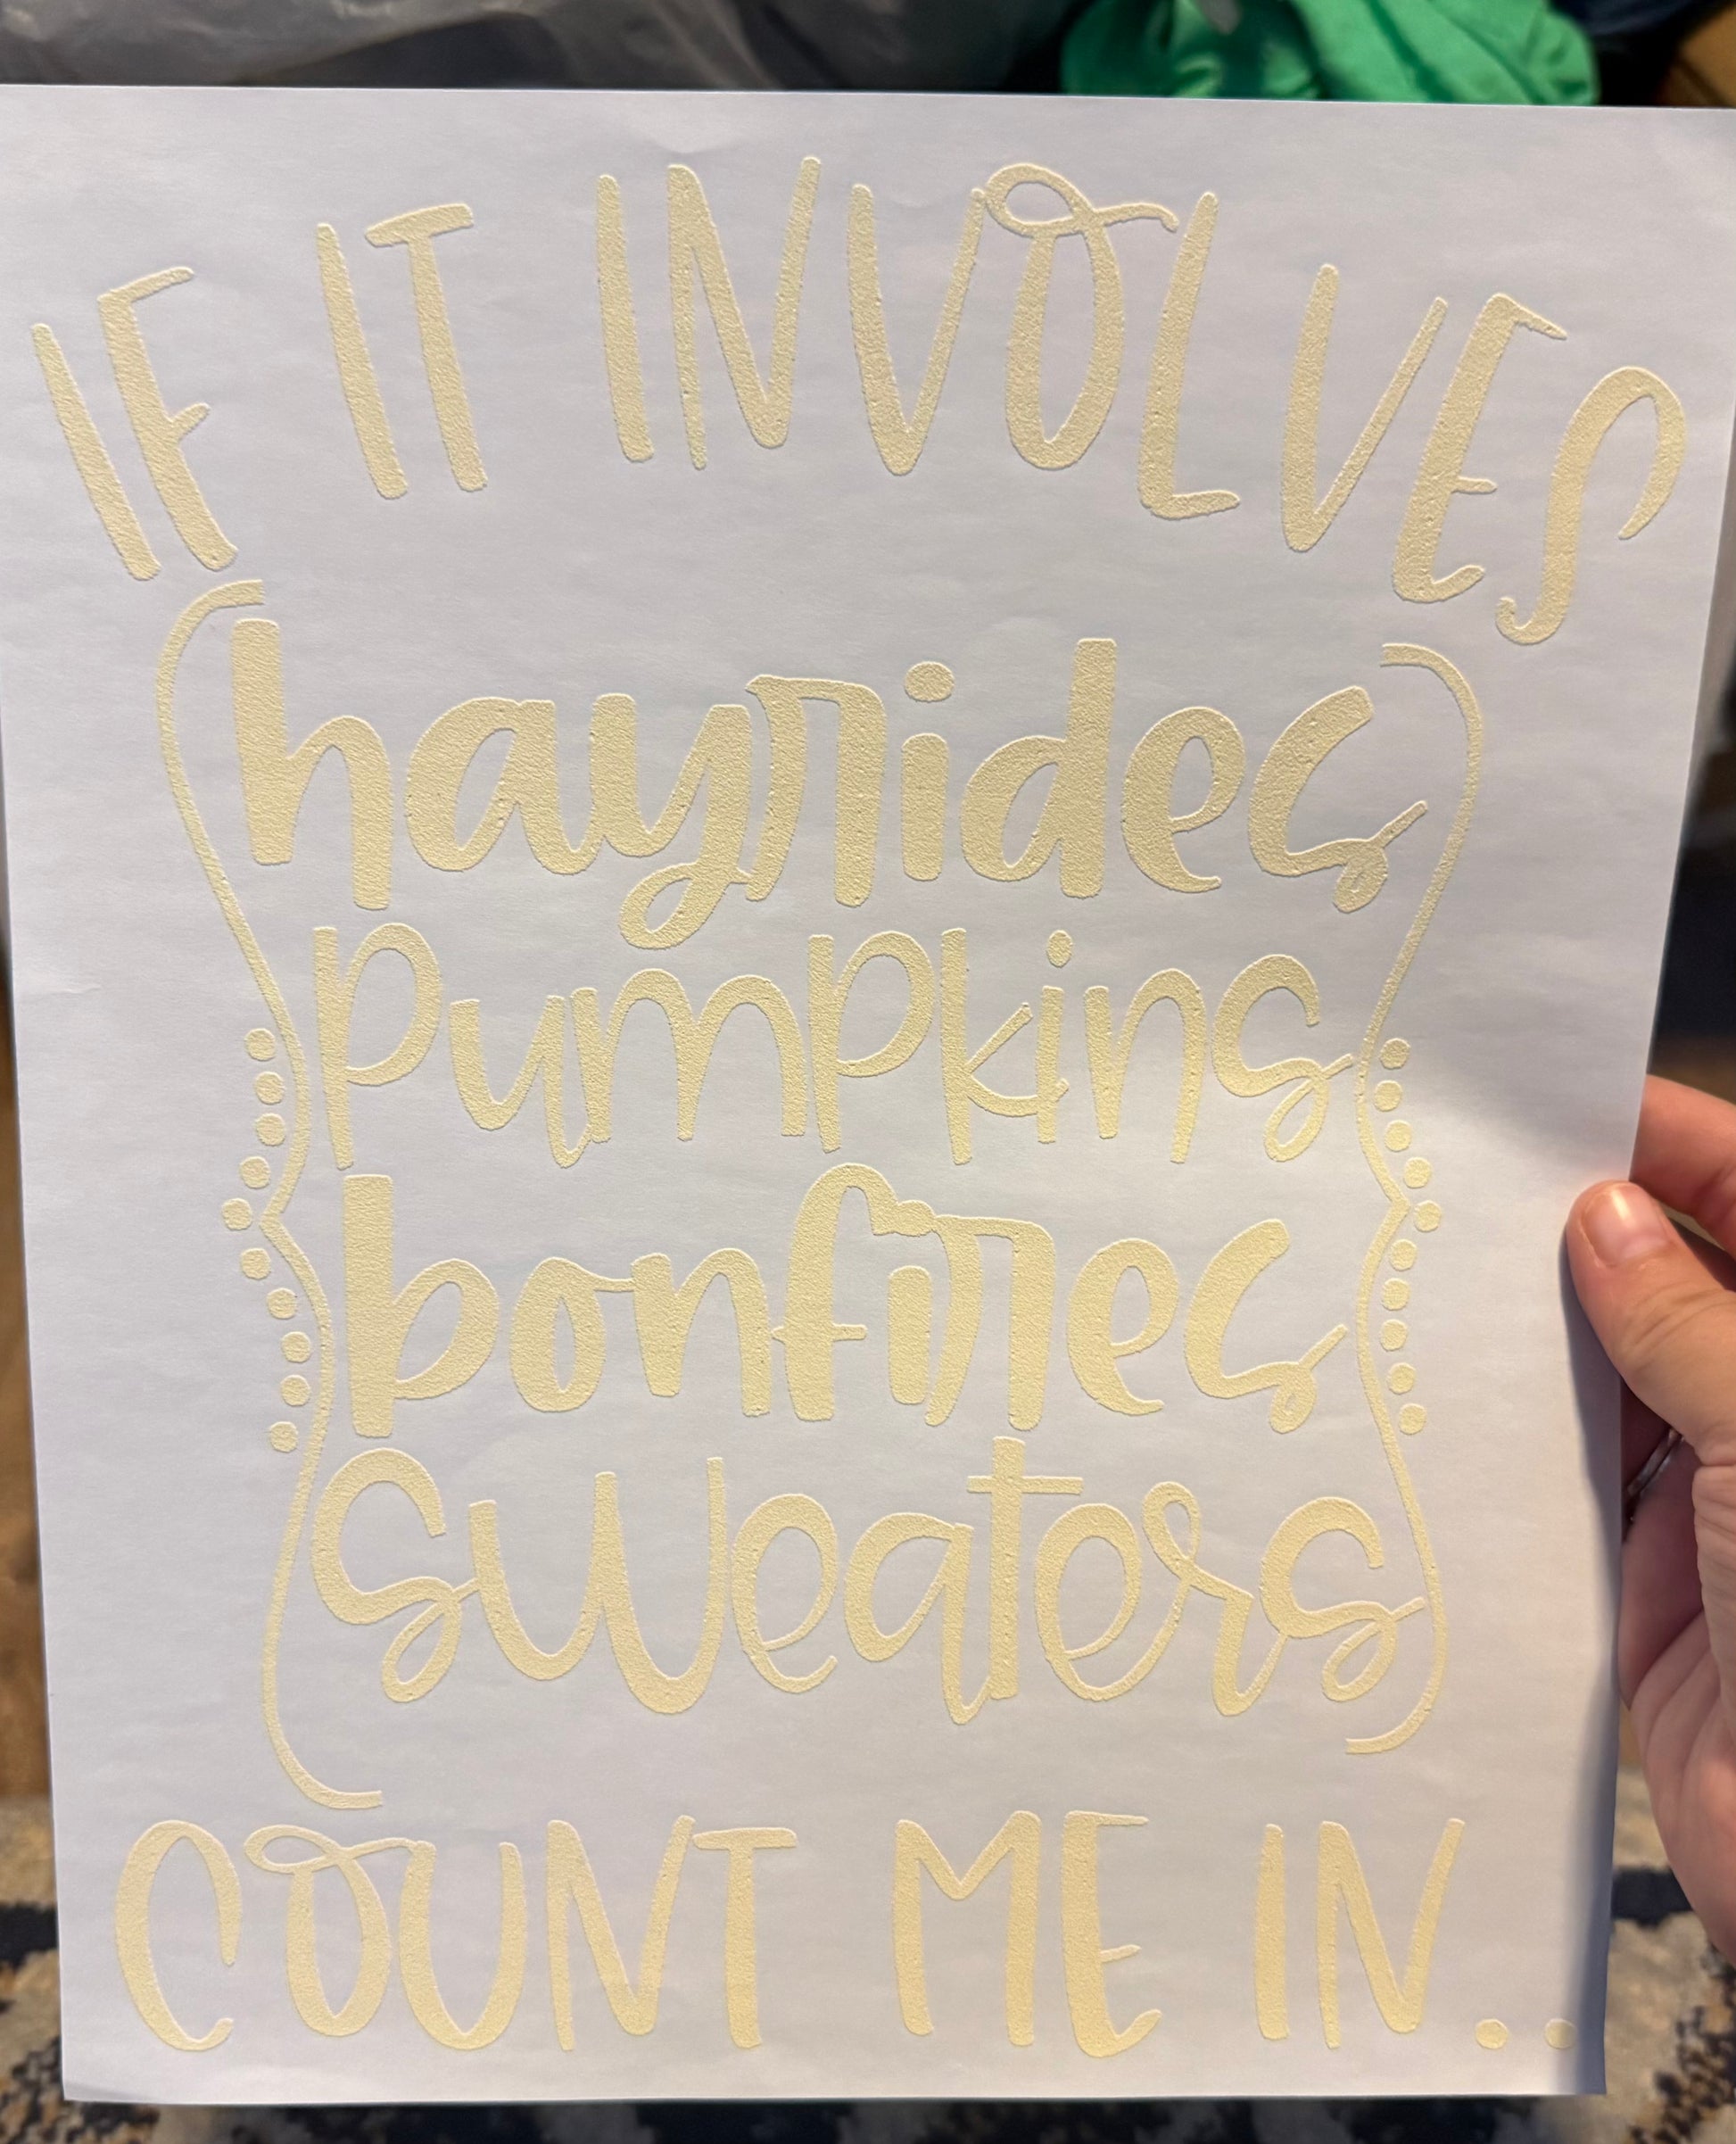 IF IT INVOLVES
hayrides
pumpkins
bonfires
sweaters
COUNT ME IN..